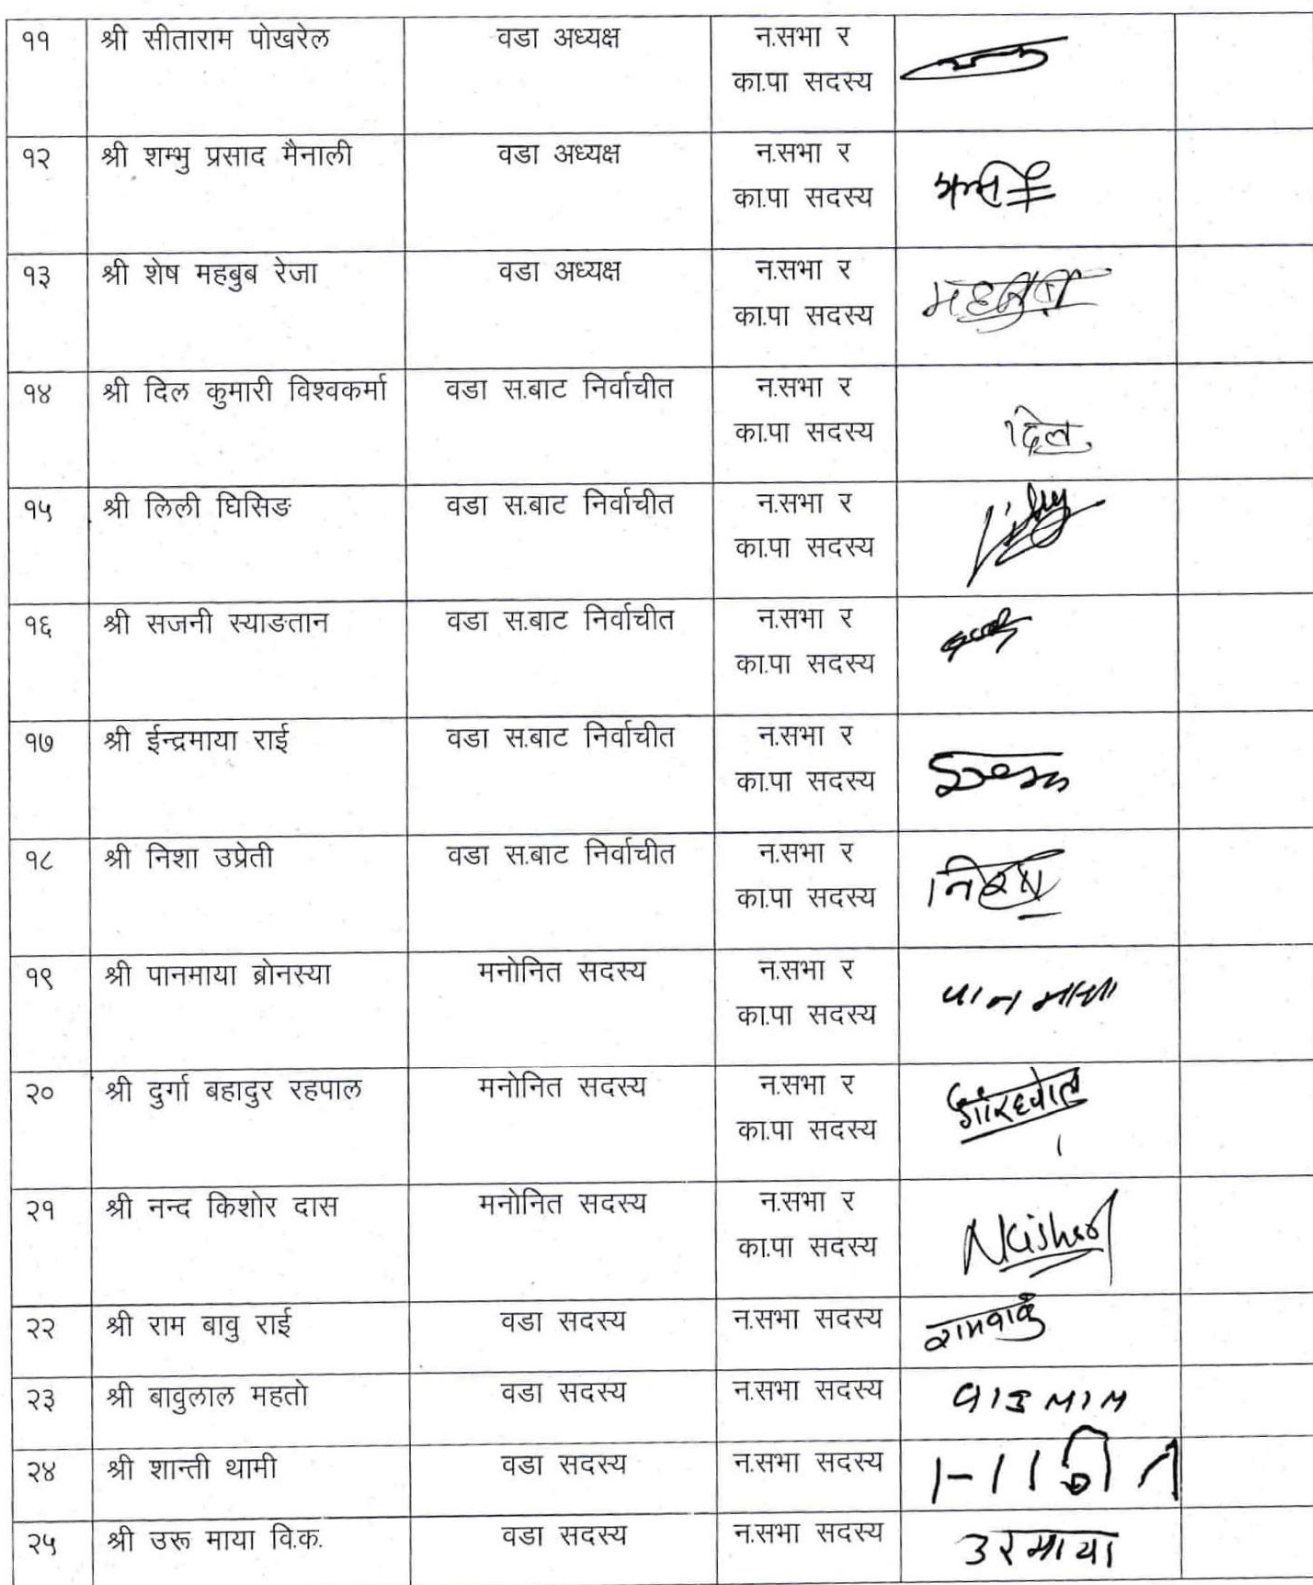 ११ श्री सीताराम पोखरेल वडा अध्यक्ष न.सभा र
का.पा सदस्य
१२ श्री शम्भु प्रसाद मैनाली वडा अध्यक्ष न.सभा र
का.पा सदस्य
१३ श्री शेष महबुब रेजा वडा अध्यक्ष न.सभा र
का.पा सदस्य
१४ श्री दिल कुमारी विश्वकर्मा वडा स.बाट निर्वाचीत न.सभा र
का.पा सदस्य दिल
१५ श्री लिली घिसिङ वडा स.बाट निर्वाचीत न.सभा र
का.पा सदस्य
१६ श्री सजनी स्याङतान वडा स.बाट निर्वाचीत न.सभा र
का.पा सदस्य
१७ श्री ईन्द्रमाया राई वडा स.बाट निर्वाचीत न.सभा र
का.पा सदस्य
१८ श्री निशा उप्रेती वडा स.बाट निर्वाचीत न.सभा र
का.पा सदस्य
१९ श्री पानमाया ब्रोनस्या मनोनित सदस्य न.सभा र
का.पा सदस्य पान माया
२० श्री दुर्गा बहादुर रहपाल मनोनित सदस्य न.सभा र
का.पा सदस्य
२१ श्री नन्द किशोर दास मनोनित सदस्य न.सभा र
का.पा सदस्य NKishor
२२ श्री राम बावु राई वडा सदस्य न.सभा सदस्य रामवावु
२३ श्री बावुलाल महतो वडा सदस्य न.सभा सदस्य
२४ श्री शान्ती थामी वडा सदस्य न.सभा सदस्य
२५ श्री उरू माया वि.क. वडा सदस्य न.सभा सदस्य उरमाया